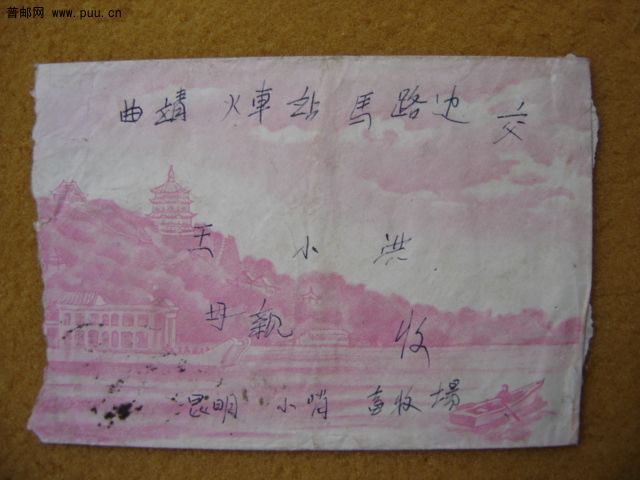 普邮网 www.puu.cn
曲靖 火車站 馬路边 交
王 小 洪
母親 收
昆明 小哨 畜牧場